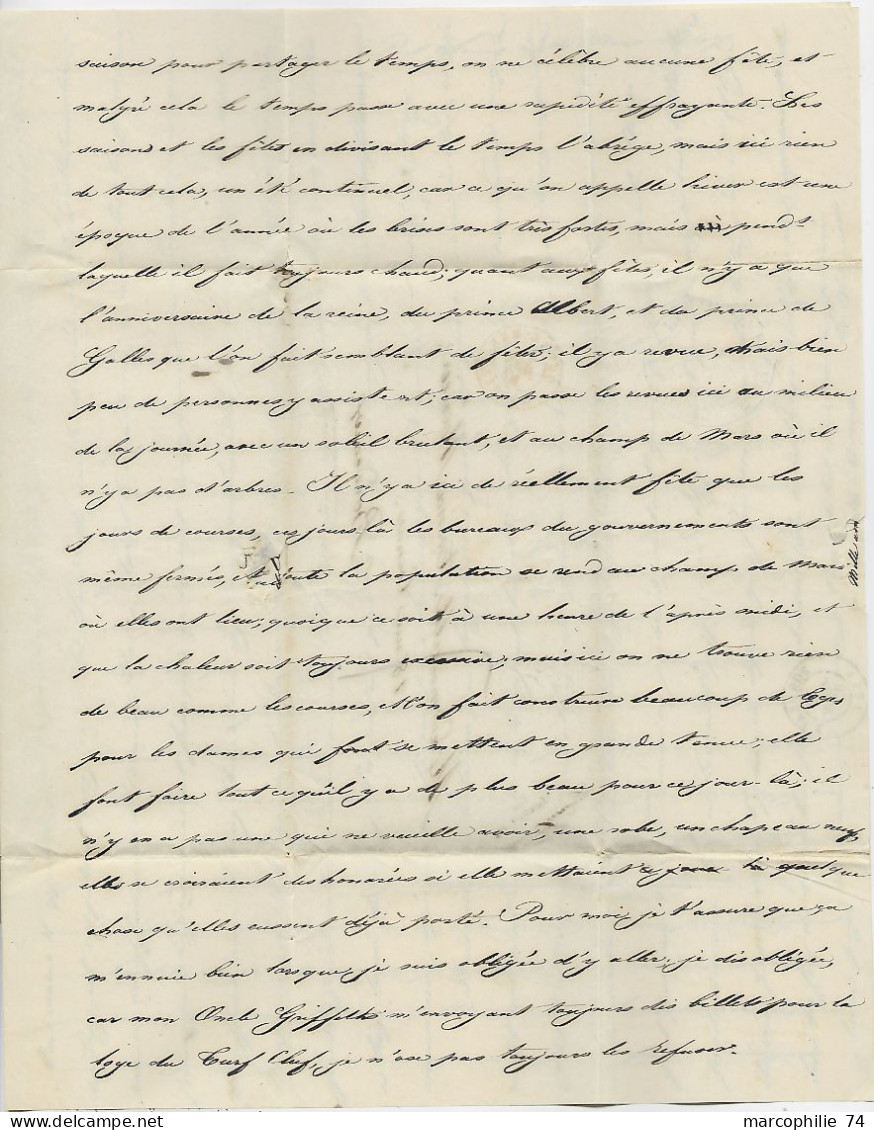 saison pour partager le temps, on ne célèbre aucune fête, et
malgré cela le temps passe avec une rapidité effrayante. Les
saisons et les fêtes en divisant le temps l'abrège, mais ici rien
de tout cela, un été continuel, car ce qu'on appelle hiver est une
époque de l'année où les brises sont très fortes, mais pendt
laquelle il fait toujours chaud; quant aux fêtes, il n'y a que
l'anniversaire de la reine, du prince Albert, et du prince de
Galles que l'on fait semblant de fêter; il y a revue, mais bien
peu de personnes y assistent, car on passe les revues ici au milieu
de la journée, avec un soleil brulant, et au champ de Mars où il
n'y a pas d'arbres. Il n'y a ici de réellement fête que les
jours de courses, ces jours là les bureaux du gouvernements sont
même fermés, et toute la population se rend au champ de Mars
où elles ont lieu; quoique ce soit à une heure de l'après midi, et
que la chaleur soit toujours excessive, mais ici on ne trouve rien
de beau comme les courses, l'on fait construire beaucoup de loges
pour les dames qui font se mettent en grande tenue; elle
font faire tout ce qu'il y a de plus beau pour ce jour-là; il
n'y en a pas une qui ne veuille avoir, une robe, un chapeau neuf,
elles se croiraient deshonorées si elle mettaient ce jour là quelque
chose qu'elles eussent déjà porté. Pour moi, je t'assure que ça
m'ennuie bien lorsque je suis obligée d'y aller, je dis obligée,
car mon Oncle Griffith m'envoyant toujours des billets pour la
loge du Turf Cluf, je n'ose pas toujours les refuser.
Mille
marcophilie 74